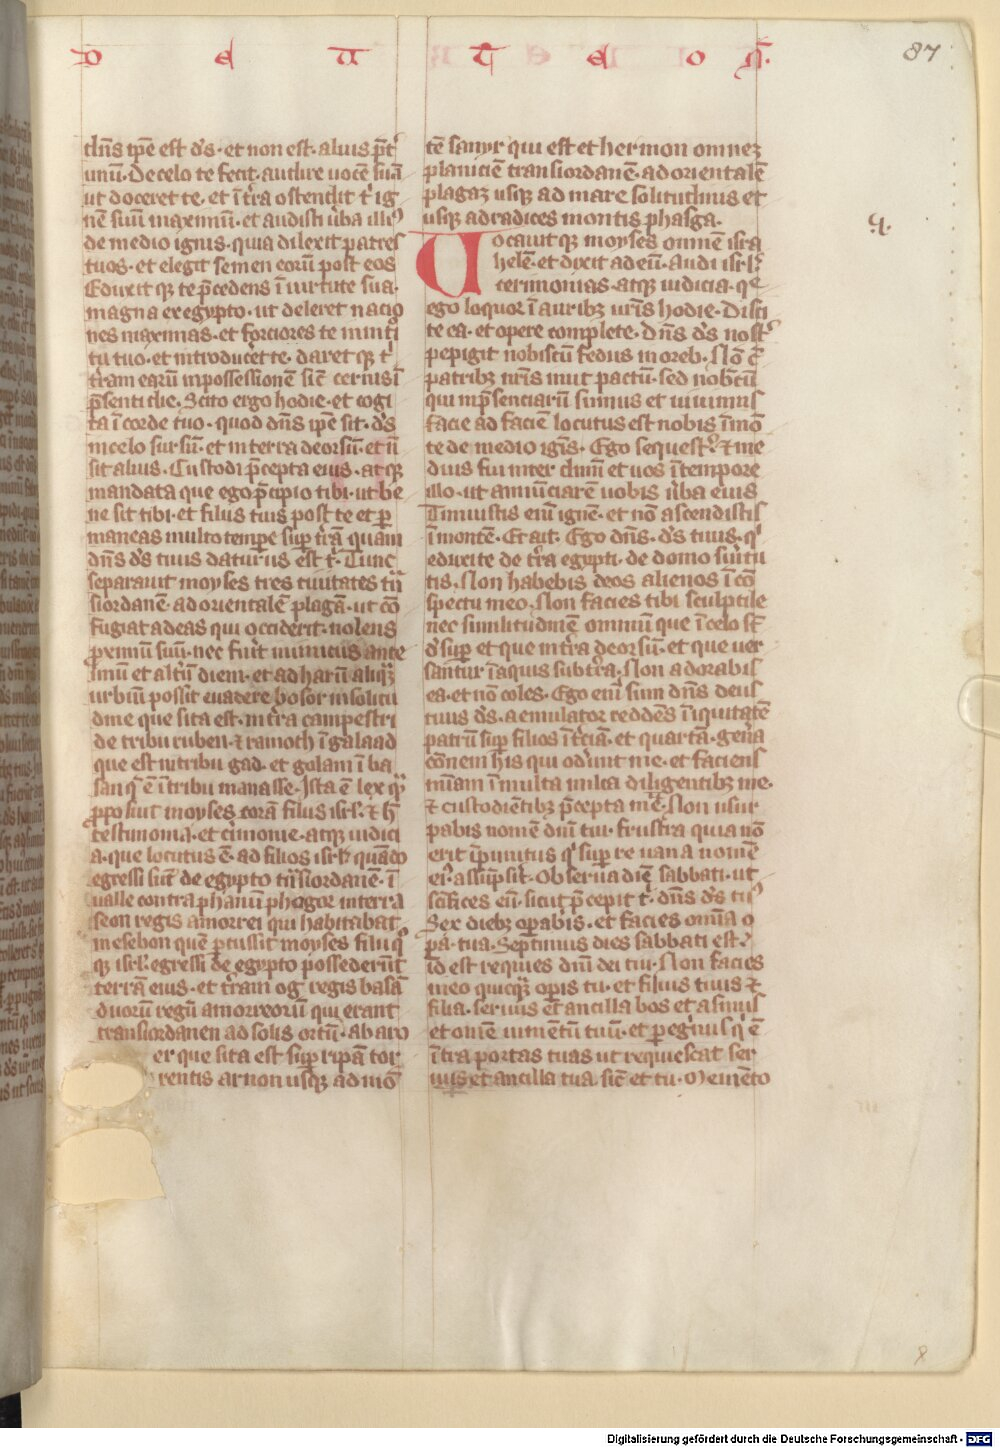 D E U T E O N̄.
87
dn̄s ip̄e est ds̄·et non est·alius p̄t̾
unū·De celo te fecit·audire uocē suā
ut doceret te·et ī tr̄a ostendit t̾ ig
nē suū maximū·et audisti ūba illiꝰ
de medio ignis·quia dilexit patres
tuos·et elegit semen eorū post eos
Eduxit qꝫ te p̄cedens ī uirtute sua
magna ex egypto·ut deleret nacio
nes maximas·et forciores te in inti
tu tuo·et introducet te·daret qꝫ t̾
tr̄am earū in possessionē sic̄ cernis ī
p̄senti die·Scito ergo hodie·et cogi
ta ī corde tuo·quod dn̄s ip̄e sit·ds̄
in celo sursū·et in terra deorsū·et n̄
sit alius·Custodi p̄cepta eius·atqꝫ
mandata que ego p̄cipio tibi·ut be
ne sit tibi·et filiis tuis post te et ꝑ
maneas multo tempe sup̄ tr̄ā quam
dn̄s ds̄ tuus daturus est t̾·Tunc
separauit moyses tres ciuitates tn̄
siordanē·ad orientalē plagā·ut cō
fugiat ad eas qui occiderit·nolens
ꝓximū suū·nec fuit inimicus ante
unū et altū diem·et ad harū aliqꝫ
urbiū possit euadere bosor in solitu
dine que sita est·in tr̄a campestri
de tribu ruben·⁊ ramoth ī galaad
que est in tribu gad·et golam ī ba
san q̄ ē ī tribu manasse·Ista ē lex q̄
ꝓposuit moyses corā filiis isrl̄·⁊ h̄
testimonia·et cimonie·atqꝫ iudici
a·que locutus ē·ad filios isrl̄ quādo
egressi sūt de egypto tn̄siordanē·ī
ualle contra phanū phogor in terra
seon regis amorrei qui habitabat
in esebon quē ꝑcussit moyses filii q̄
qꝫ isrl̄·egressi de egypto possederūt
terrā eius·et tr̄am og regis basā
duorū regū amorreorū qui erant
transiordanen ad solis ortū·ab aro
er que sita est sup̄ ripā tor
rentis arnon usqꝫ ad mō
tē sanyr qui est et hermon omneꝫ
planiciē transiordanē·ad orientalē
plagaꝫ usqꝫ ad mare solitudinis et
usqꝫ ad radices montis phasga·
Uocauit qꝫ moyses omnē isra
helē·et dixit ad eū·Audi isrl̄
cerimonias·atqꝫ iudicia·q̄
ego loquor ī auribꝫ ur̄is hodie·Disci
te ea·et opere complete·Dn̄s ds̄ nost̾
pepigit nobiscū fedus in oreb·Nō c̄
patribꝫ nr̄is iniit pactū·sed nob̄cū
qui in p̄senciarū sumus et uiuimus
facie ad faciē locutus est nobis ī mō
te de medio ignis·Ego sequest̾·⁊ me
dius fui inter dn̄m et uos ī tempore
illo·ut annūciarē uobis ūba eius
Timuistis eni ignē·et nō ascendistis
ī montē·Et ait·Ego dn̄s·ds̄ tuus·q̄
eduxi te de tr̄a egypti·de domo suitu
tis·Non habebis deos alienos ī cō
spectu meo·Non facies tibi sculptile
nec similitudinē omniū que ī celo st̄
dsup̄ et que in tr̄a deorsū·et que uer
santur ī aquis sub tr̄a·Non adorabis
ea·et nō coles·Ego eni sum dn̄s deus
tuus ds̄·aemulator reddēs ī iquitatē
patrū sup̄ filios ī tciā·et quartā·gen̄a
cōnem his qui oderūt me·et faciens
mīam ī multa milia diligentibꝫ me·
⁊ custodiētibꝫ p̄cepta m̄e·Non usur
pabis nomē dn̄i tui·frustra quia nō
erit ip̄unitus q̄ sup̄ re uana nomē
eiꝰ assūpsit·Obserua diē sabbati·ut
sc̄ifices eū·sicut p̄cepit t̾·dn̄s ds̄ tuꝰ
Sex diebꝫ oꝑabis·et facies omīa o
ꝑa·tua·Septimus dies sabbati est·
id est requies dn̄i dei tui·Non facies
in eo quicqꝫ opis tu·et filius tuus ⁊
filia·seruus et ancilla bos et asinus
et omē iumentū tuū·et ꝑegrinus q̄ ē
ītra portas tuas ut requiescat ser
uus et ancilla tua sic̄ et tu·Memēto
Digitalisierung gefördert durch die Deutsche Forschungsgemeinschaft - DFG